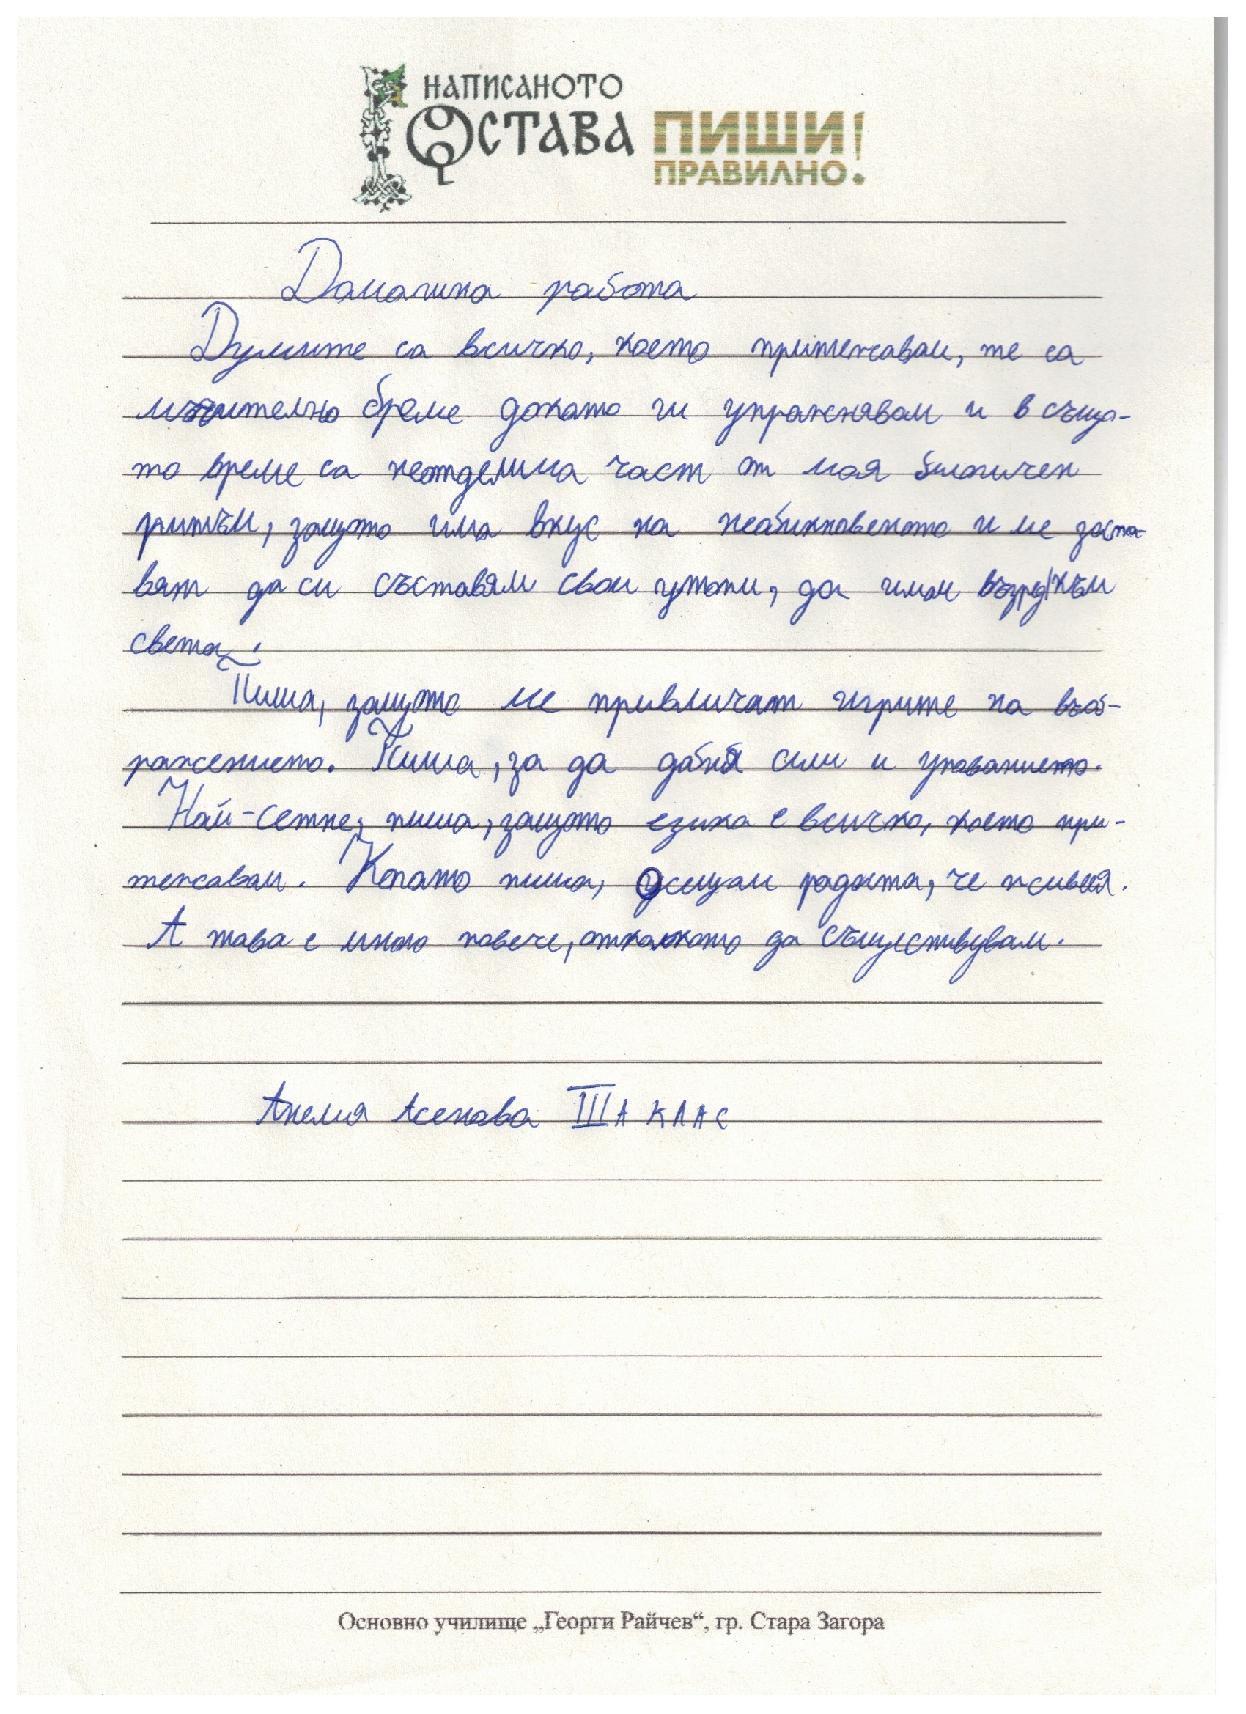 НАПИСАНОТО
ОСТАВА ПИШИ
ПРАВИЛНО!
Домашна работа
Думите са всичко, което притежавам, те са
мъчително бреме докато ги упражнявам и в също-
то време са неотделима част от моя биологичен
ритъм, защото има вкус на необикновеното и ме заста-
вят да си съставям свои утопии, да имам възглед към
света.
Пиша, защото ме привличат игрите на въоб-
ражението. Пиша, за да добия сили и упованието.
Най-сетне, пиша, защото езика е всичко, което при-
тежавам. Когато пиша, усещам радостта, че живея.
А това е много повече, отколкото да съществувам.
Анелия Асенова III А КЛАС
Основно училище „Георги Райчев“, гр. Стара Загора